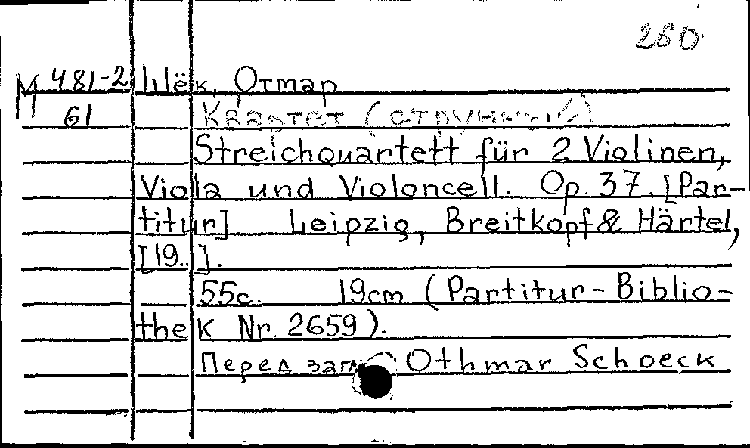 260
М 481-2 Шёк, Отмар
61 Квартет (струнный)
Streichquartett für 2 Violinen,
Viola und Violoncell. Op. 37. [Par-
titur] Leipzig, Breitkopf & Härtel,
[19..].
55с. 19cm (Partitur-Biblio-
thek Nr. 2659).
Перед загл. Othmar Schoeck